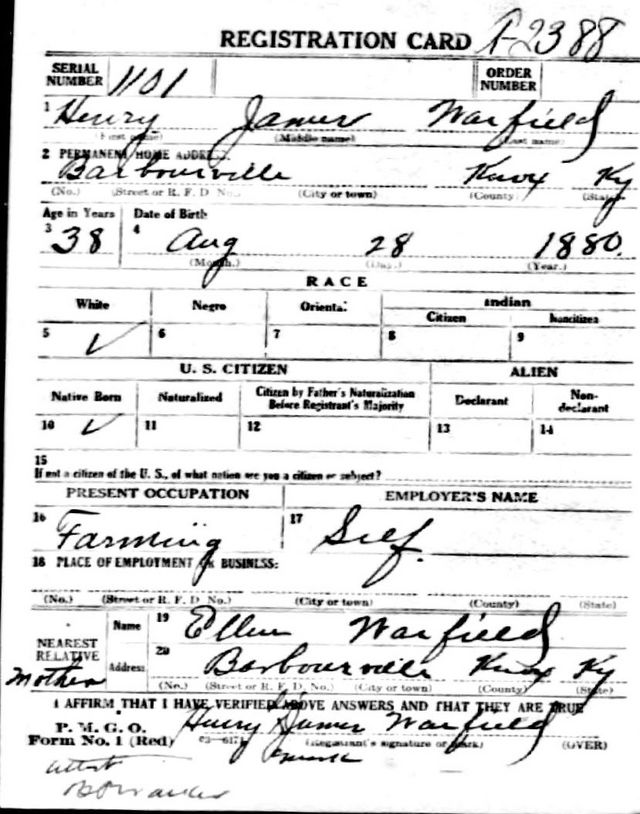 REGISTRATION CARD A-2388
SERIAL NUMBER 1101 ORDER NUMBER
1 Henry James Warfield
(First name) (Middle name) (Last name)
2 PERMANENT HOME ADDRESS:
Barbourville Knox Ky
(No.) (Street or R. F. D. No.) (City or town) (County) (State)
Age in Years Date of Birth
3 38 4 Aug 28 1880.
(Month.) (Day.) (Year.)
RACE
White Negro Oriental Indian
Citizen Noncitizen
5 ✓ 6 7 8 9
U. S. CITIZEN ALIEN
Native Born Naturalized Citizen by Father's Naturalization Before Registrant's Majority Declarant Non-declarant
10 ✓ 11 12 13 14
15
If not a citizen of the U. S., of what nation are you a citizen or subject?
PRESENT OCCUPATION EMPLOYER'S NAME
16 Farming 17 Self.
18 PLACE OF EMPLOYMENT OR BUSINESS:
(No.) (Street or R. F. D. No.) (City or town) (County) (State)
NEAREST RELATIVE Name 19 Ellen Warfield
Mother Address 20 Barbourville Knox Ky
(No.) (Street or R. F. D. No.) (City or town) (County) (State)
I AFFIRM THAT I HAVE VERIFIED ABOVE ANSWERS AND THAT THEY ARE TRUE
P. M. G. O.
Form No. 1 (Red) Henry James Warfield
(Registrant's signature or mark) (OVER)
mark
attest